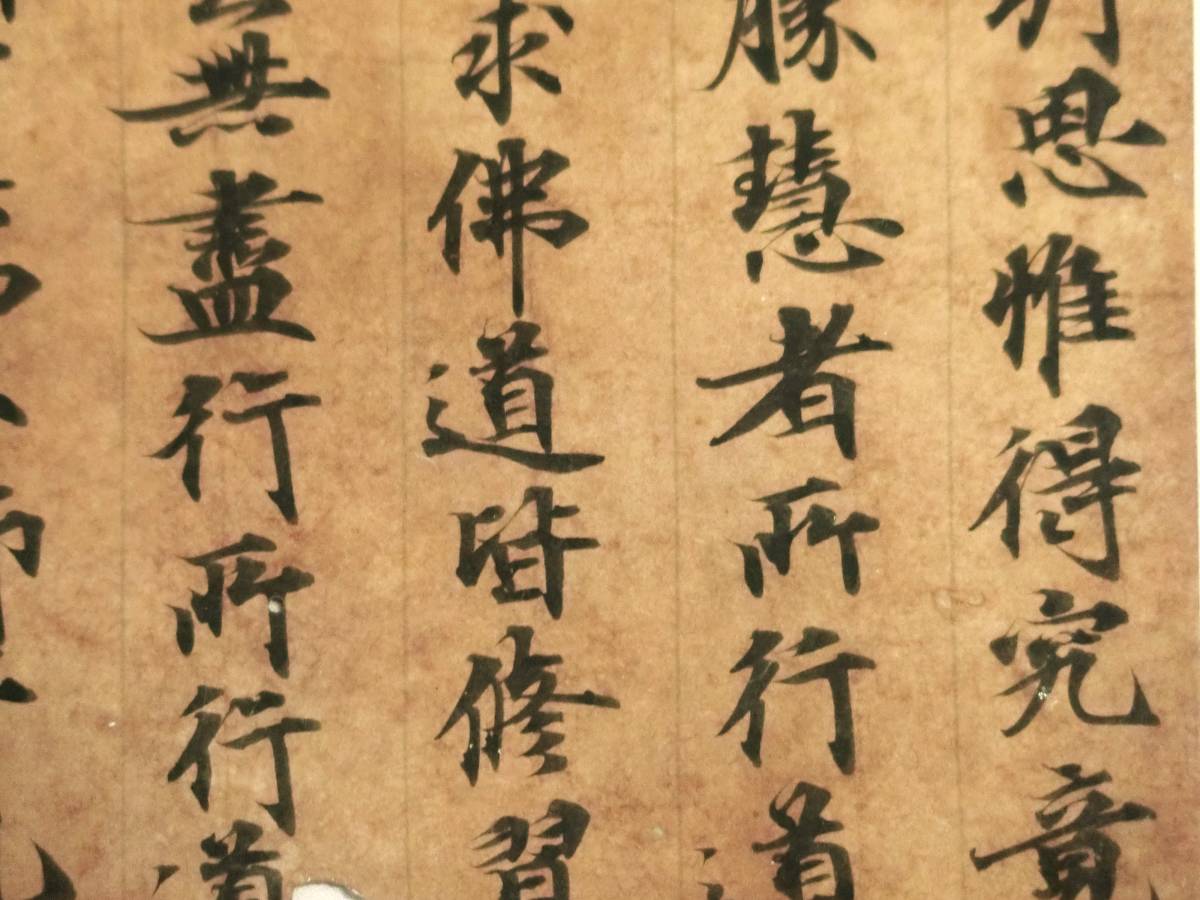 思惟得究竟
勝慧者所行道
求佛道皆修習
無盡行所行道